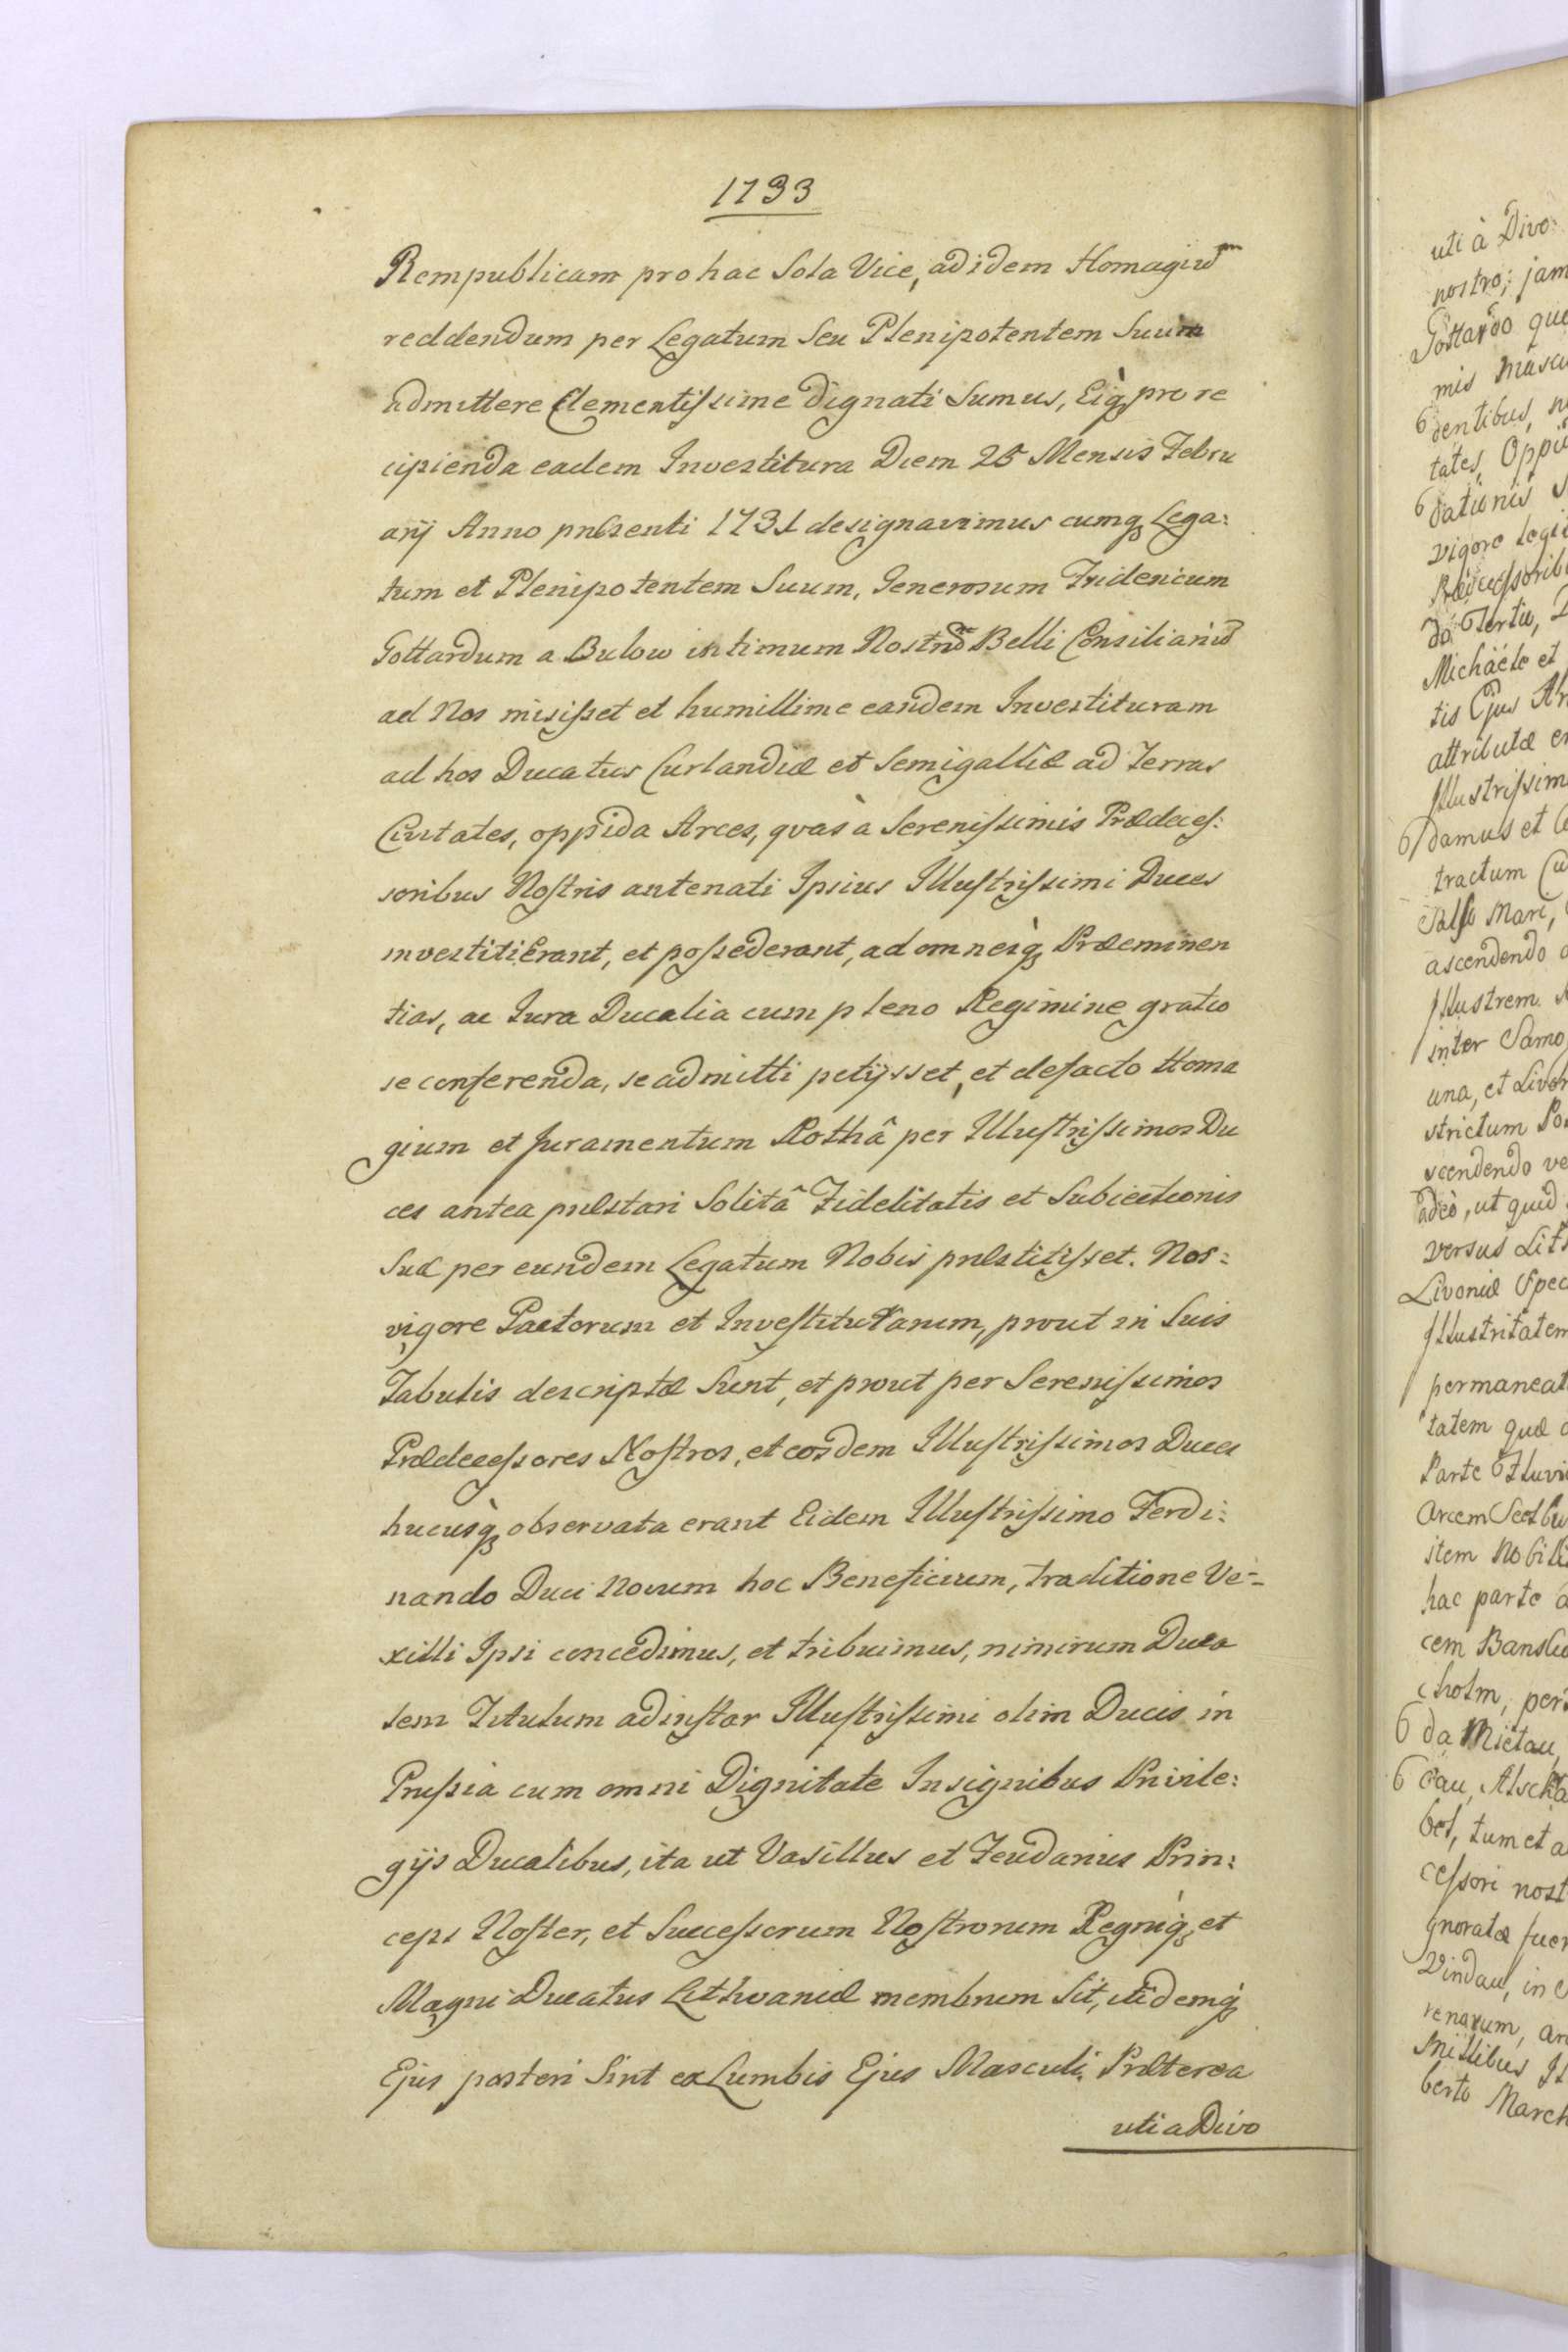 1733
Rempublicam pro hac Sola Vice, ad idem Homagiu͠m
reddendum per Legatum Seu Plenipotentem Suum
admittere Clementissime dignati Sumus, Eiq̃ pro re
cipienda eadem Investitura Diem 25 Mensis Febru
arij Anno pnſsenti 1731 designavimus cumq̃ Lega:
tum et Plenipotentem Suum, Generosum Fridericum
Gottardum a Bulow intimum Nostru͠m Belli Consiliariu͠
ad Nos misisset et humillime eandem Investituram
ad hos Ducatus Curlandiæ et Semigalliæ ad Terras
Civitates, oppida Arces, qvas à Serenissimis Prædeces:
soribus Nostris antenati Ipsius Illustrissimi Duces
investiti Erant, et possederant, ad omnesq̃ Præeminen
tias, ac Iura Ducalia cum pleno Regimine gratio
se conferenda, se admitti petijsset, et defacto Homa
gium et Juramentum Rothâ per Illustrissimos Du
ces antea præstari Solitâ Fidelitatis et Subiectionis
Suæ per eundem Legatum Nobis præstitisset. Nos:
vigore Pactorum et Investiturarum, prout in Suis
Tabulis descriptæ Sunt, et prout per Serenissimos
Prædecessores Nostros, et eosdem Illustrissimos Duces
hucusq̃ observata erant Eidem Illustrissimo Ferdi:
nando Duci Novum hoc Beneficium, traditione Ve:
xilli Ipsi concedimus, et tribuimus, nimirum Duca
lem Titulum ad instar Illustrissimi olim Ducis in
Prussia cum omni Dignitate Insignibus Privile:
gijs Ducalibus, ita ut Vasillus et Feudarius Prin:
ceps Noster, et Successorum Nostrorum Regniq̃ et
Magni Ducatus Lithvaniæ membrum Sit, itidemq̃
Ejus posteri Sint ex Lumbis Ejus Masculi. Præterea
uti a Divo
uti à Divo:
nostro; jam
Gottardo que
mis mascu
dentibus,
tates, Oppi
dationis
vigore
do Tertio,
Michäele et
tis Ejus
attributæ
Illustrissim
damus et
tractum
Salso Mari,
ascendendo
Illustrem
inter Samo
una, et Livon
strictum
scendendo ve
adeò, ut quid
versus Lit
Livoniæ Spec
Illustritatem
permaneat
tatem quæ
Parte Fluvi
Arcem
item Nobili
hac parte
cem
cholm, per
da Mietau,
bet, tum et a
cessori nost
gnoratæ fuer
Vindau, in
renarum,
millibus
berto March